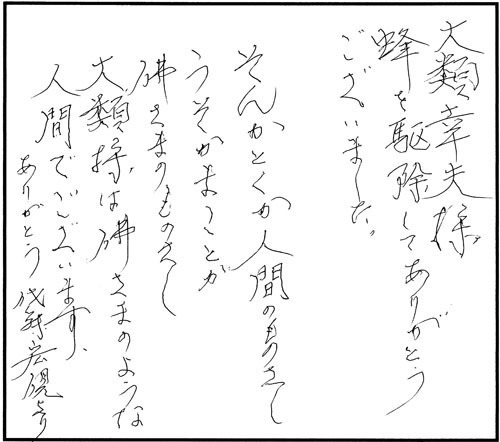 大類幸夫様
蜂を駆除してありがとう
ございました。
そんかとくか人間のものさし
うそかまことが
佛さまのものさし
大類様は佛さまのような
人間でございます、
ありがとう
より